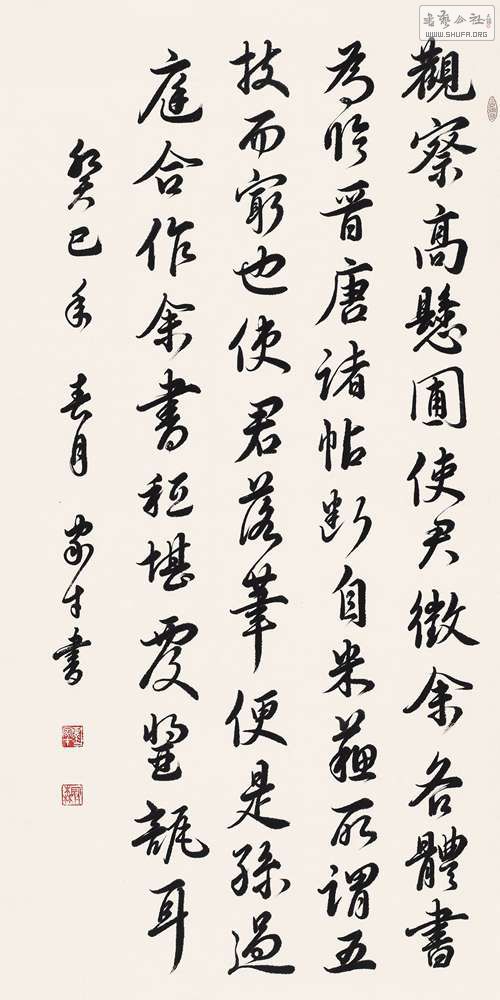 書藝公社
WWW.SHUFA.ORG
觀察高懸圃使君徵余各體書
為臨晉唐諸帖斷自米蘇所謂五
技而窮也使君落筆便是孫過
庭合作余書秖堪覆醬瓿耳
癸巳年春月家生書